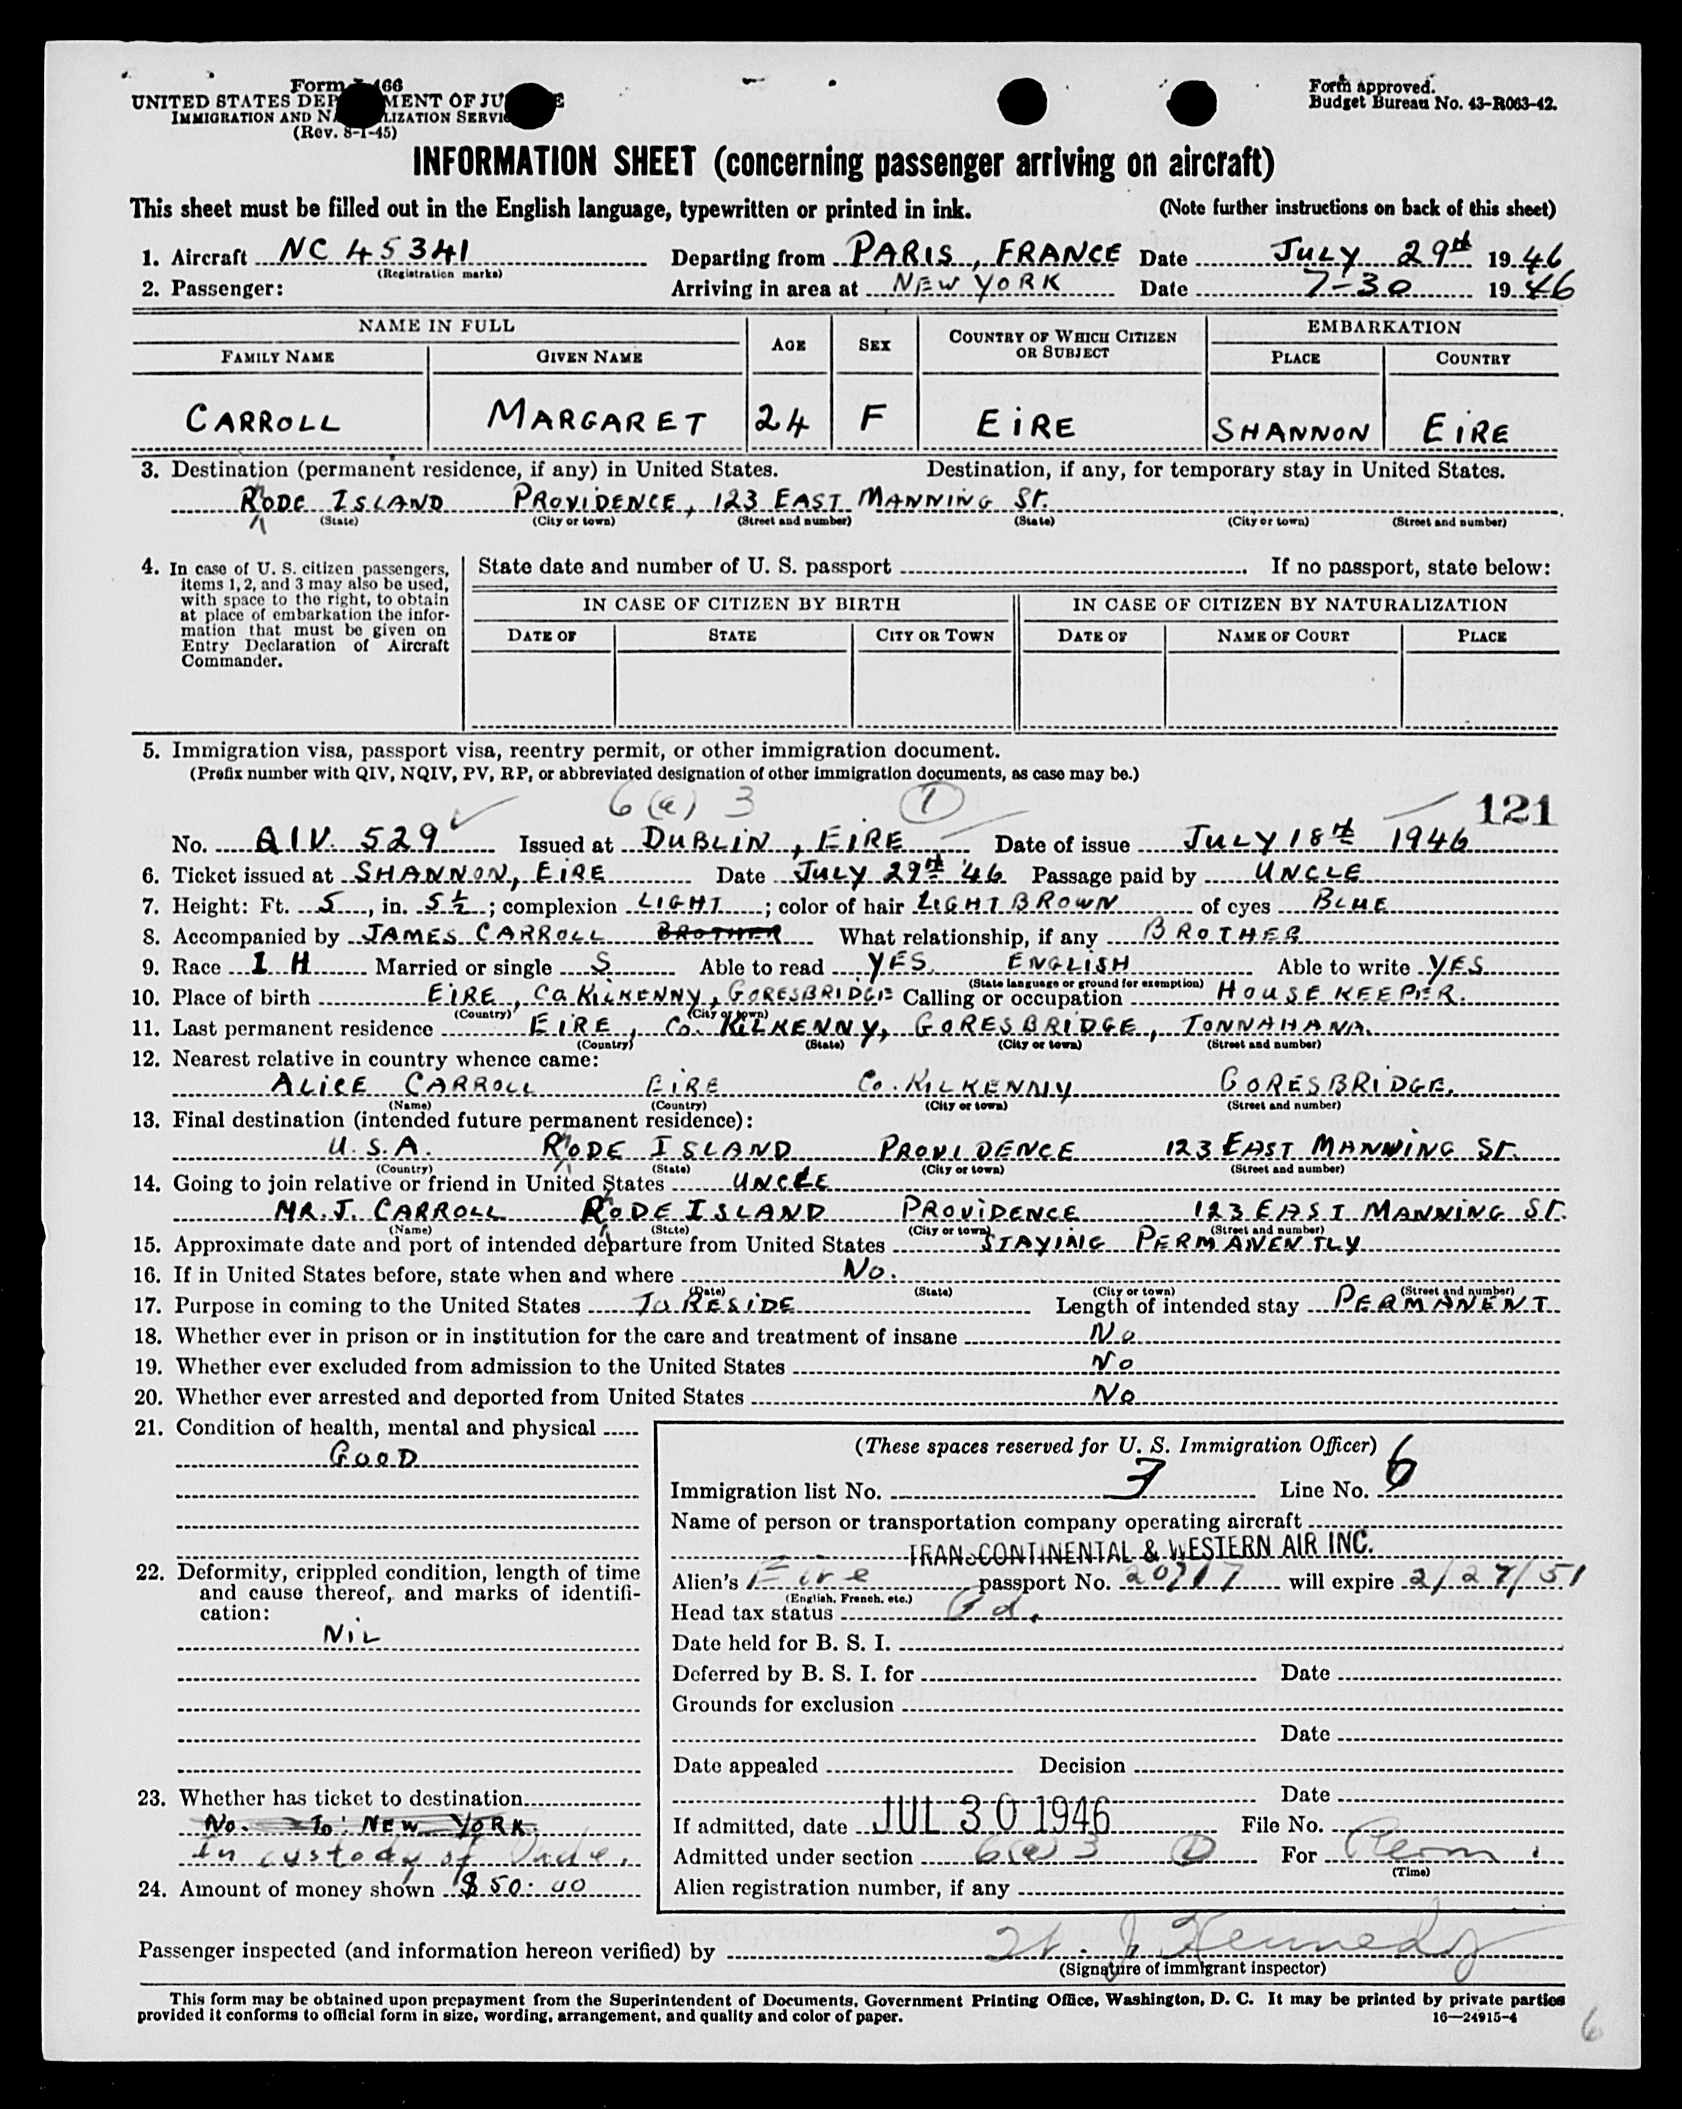 Form I-466
UNITED STATES DEPARTMENT OF JUSTICE
IMMIGRATION AND NATURALIZATION SERVICE
(Rev. 8-1-45)
Form approved.
Budget Bureau No. 43-R063-42.
INFORMATION SHEET (concerning passenger arriving on aircraft)
This sheet must be filled out in the English language, typewritten or printed in ink. (Note further instructions on back of this sheet)
1. Aircraft NC 45341 Departing from PARIS, FRANCE Date JULY 29th 1946
(Registration marks)
2. Passenger: Arriving in area at NEW YORK Date 7-30 1946
NAME IN FULL AGE SEX COUNTRY OF WHICH CITIZEN OR SUBJECT EMBARKATION
FAMILY NAME GIVEN NAME PLACE COUNTRY
CARROLL MARGARET 24 F EIRE SHANNON EIRE
3. Destination (permanent residence, if any) in United States. Destination, if any, for temporary stay in United States.
RhODE ISLAND PROVIDENCE, 123 EAST MANNING St.
(State) (City or town) (Street and number) (State) (City or town) (Street and number)
4. In case of U. S. citizen passengers, items 1, 2, and 3 may also be used, with space to the right, to obtain at place of embarkation the information that must be given on Entry Declaration of Aircraft Commander.
State date and number of U. S. passport If no passport, state below:
IN CASE OF CITIZEN BY BIRTH IN CASE OF CITIZEN BY NATURALIZATION
DATE OF STATE CITY OR TOWN DATE OF NAME OF COURT PLACE
5. Immigration visa, passport visa, reentry permit, or other immigration document.
(Prefix number with QIV, NQIV, PV, RP, or abbreviated designation of other immigration documents, as case may be.)
6(a) 3 1 121
No. QIV. 529 Issued at DUBLIN, EIRE Date of issue JULY 18th 1946
6. Ticket issued at SHANNON, EIRE Date JULY 29th '46 Passage paid by UNCLE
7. Height: Ft. 5, in. 5½; complexion LIGHT; color of hair LIGHT BROWN of eyes BLUE
8. Accompanied by JAMES CARROLL BROTHER What relationship, if any BROTHER
9. Race I H Married or single S Able to read YES ENGLISH Able to write YES
(State language or ground for exemption)
10. Place of birth EIRE, Co. KILKENNY, GORESBRIDGE Calling or occupation HOUSE KEEPER.
(Country) (City or town)
11. Last permanent residence EIRE, Co. KILKENNY, GORESBRIDGE, TONNAHANA.
(Country) (State) (City or town) (Street and number)
12. Nearest relative in country whence came:
ALICE CARROLL EIRE Co. KILKENNY GORESBRIDGE.
(Name) (Country) (City or town) (Street and number)
13. Final destination (intended future permanent residence):
U.S.A. RhODE ISLAND PROVIDENCE 123 EAST MANNING St.
(Country) (State) (City or town) (Street and number)
14. Going to join relative or friend in United States UNCLE
MR. J. CARROLL RhODE ISLAND PROVIDENCE 123 EAST MANNING ST.
(Name) (State) (City or town) (Street and number)
15. Approximate date and port of intended departure from United States STAYING PERMANENTLY
16. If in United States before, state when and where No.
(Date) (State) (City or town) (Street and number)
17. Purpose in coming to the United States To RESIDE Length of intended stay PERMANENT
18. Whether ever in prison or in institution for the care and treatment of insane No
19. Whether ever excluded from admission to the United States No
20. Whether ever arrested and deported from United States No
21. Condition of health, mental and physical
GOOD
22. Deformity, crippled condition, length of time and cause thereof, and marks of identification:
NIL
23. Whether has ticket to destination
No. To NEW YORK
In custody of Uncle.
24. Amount of money shown $50.00
(These spaces reserved for U. S. Immigration Officer)
Immigration list No. 3 Line No. 6
Name of person or transportation company operating aircraft
TRANSCONTINENTAL & WESTERN AIR INC.
Alien's Eire passport No. will expire 2/27/51
(English, French, etc.)
Head tax status Pd.
Date held for B. S. I.
Deferred by B. S. I. for Date
Grounds for exclusion
Date
Date appealed Decision
Date
If admitted, date JUL 30 1946 File No.
Admitted under section 6(a) 3 1 For Perm.
(Time)
Alien registration number, if any
Passenger inspected (and information hereon verified) by J Kennedy
(Signature of immigrant inspector)
This form may be obtained upon prepayment from the Superintendent of Documents, Government Printing Office, Washington, D. C. It may be printed by private parties
provided it conforms to official form in size, wording, arrangement, and quality and color of paper. 16—24915-4
6